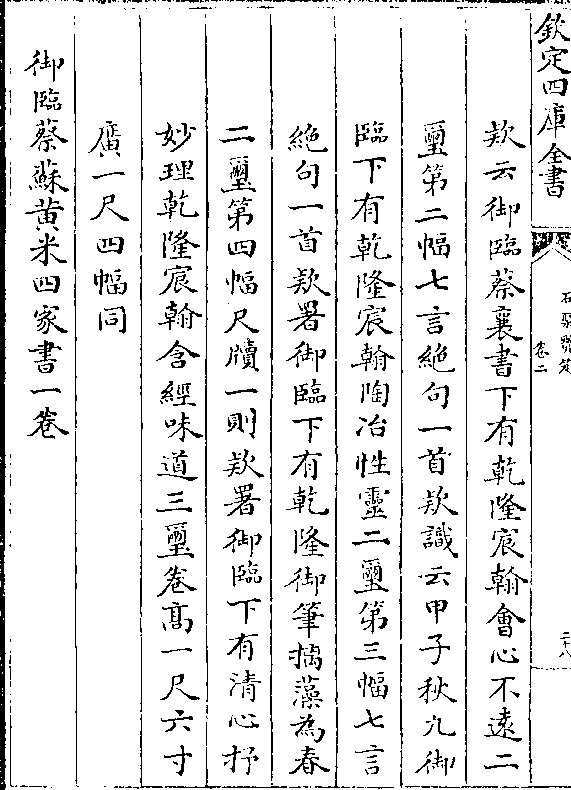 欽定四庫全書
石渠寶笈
卷二
二十八
欵云御臨蔡襄書下有乾隆宸翰會心不遠二
璽第二幅七言絶句一首欵識云甲子秋九御
臨下有乾隆宸翰陶冶性靈二璽第三幅七言
絶句一首欵署御臨下有乾隆御筆摛藻為春
二璽第四幅尺牘一則欵署御臨下有清心抒
妙理乾隆宸翰含經味道三璽卷髙一尺六寸
廣一尺四幅同
御臨蔡蘇黄米四家書一卷